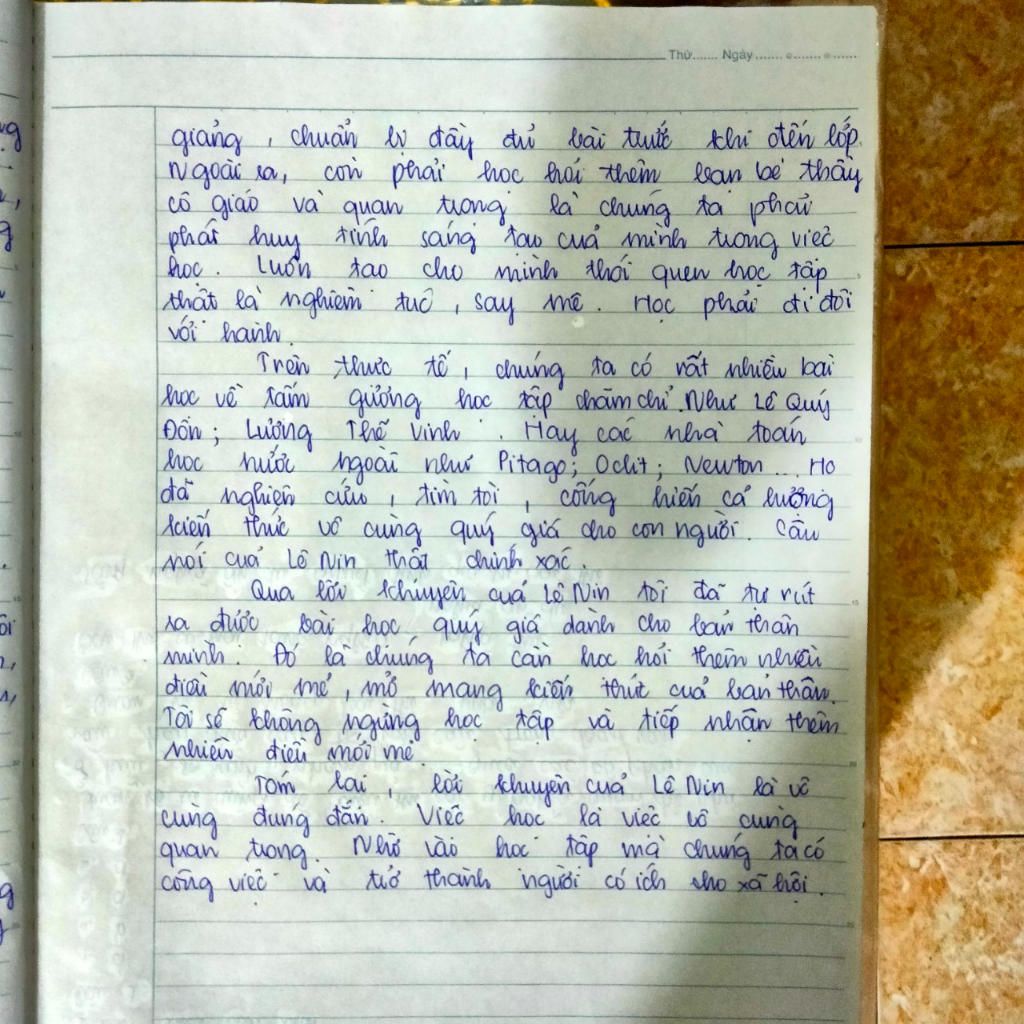 Thứ....... Ngày.......
giảng, chuẩn bị đầy đủ bài trước khi đến lớp.
Ngoài ra, còn phải học hỏi thêm bạn bè thầy
cô giáo và quan trọng là chúng ta phải
phát huy tính sáng tạo của mình trong việc
học. Luôn tạo cho mình thói quen học tập
thật là nghiêm túc, say mê. Học phải đi đôi
với hành.
Trên thực tế, chúng ta có rất nhiều bài
học về tấm gương học tập chăm chỉ. Như Lê Quý
Đôn; Lương Thế Vinh. Hay các nhà toán
học nước ngoài như Pitago; Ơclit; Newton... Họ
đã nghiên cứu, tìm tòi, cống hiến cả lượng
kiến thức vô cùng quý giá cho con người. Câu
nói của Lê Nin thật chính xác.
Qua lời khuyên của Lê Nin tôi đã tự rút
ra được bài học quý giá dành cho bản thân
mình. Đó là chúng ta cần học hỏi thêm nhiều
điều mới mẻ, mở mang kiến thức của bản thân.
Tôi sẽ không ngừng học tập và tiếp nhận thêm
nhiều điều mới mẻ.
Tóm lại, lời khuyên của Lê Nin là vô
cùng đúng đắn. Việc học là việc vô cùng
quan trọng. Nhờ vào học tập mà chúng ta có
công việc và trở thành người có ích cho xã hội.